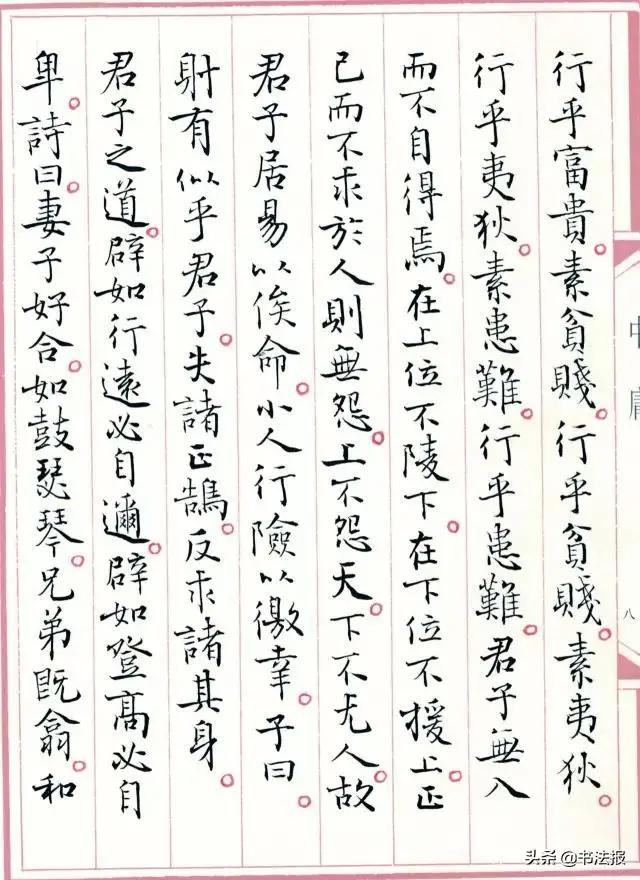 行乎富貴。素貧賤。行乎貧賤。素夷狄。
行乎夷狄。素患難。行乎患難。君子無入
而不自得焉。在上位不陵下。在下位不援上。正
己而不求於人則無怨。上不怨天。下不尤人。故
君子居易以俟命。小人行險以徼幸。子曰。
射有似乎君子。失諸正鵠。反求諸其身。
君子之道。辟如行遠必自邇。辟如登高必自
卑。詩曰。妻子好合。如鼓瑟琴。兄弟既翕。和
中庸
八
头条 @书法报